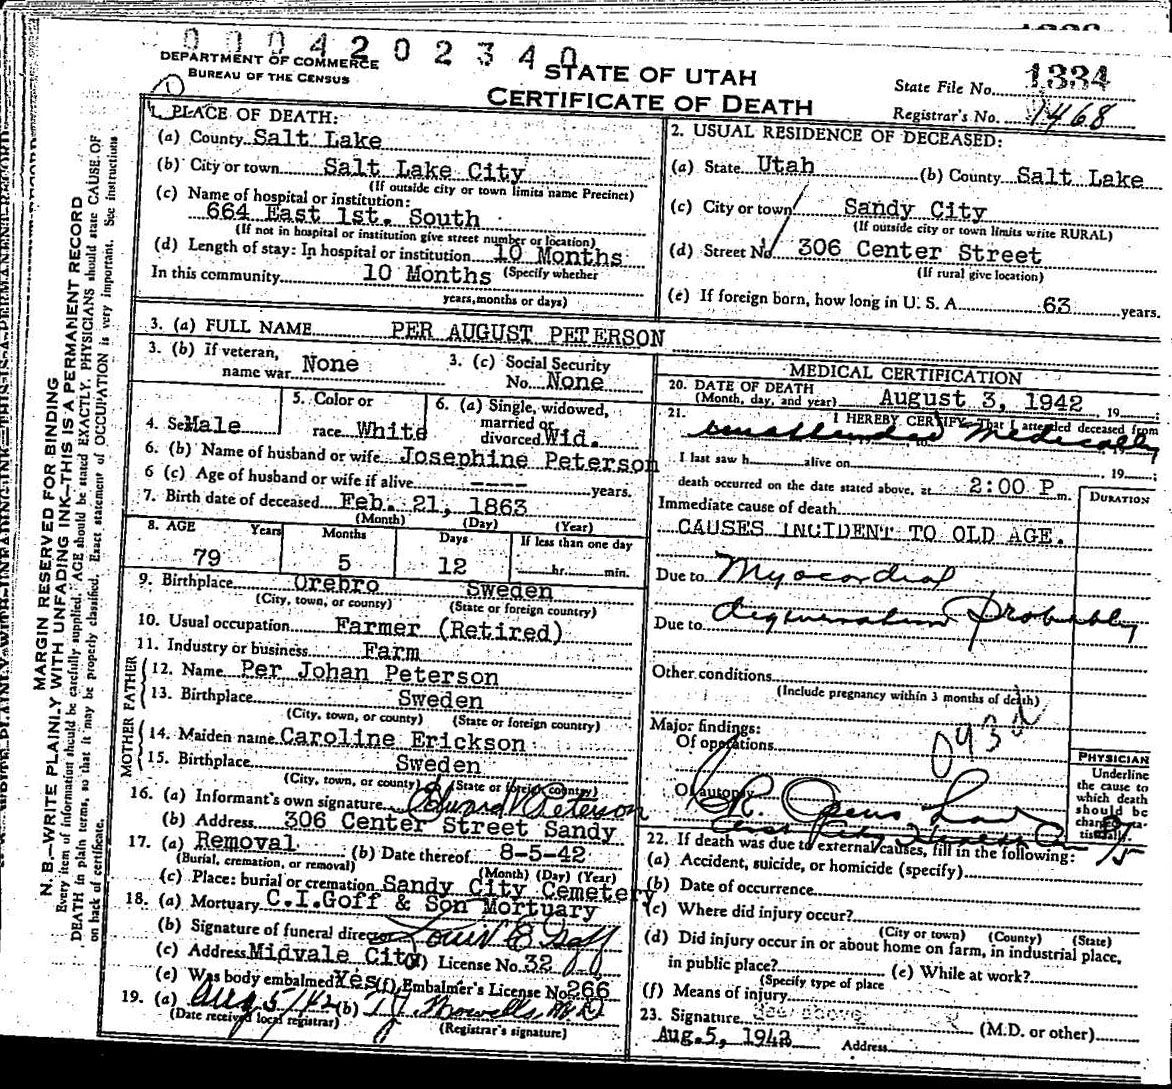 0004202340
DEPARTMENT OF COMMERCE
BUREAU OF THE CENSUS
STATE OF UTAH
CERTIFICATE OF DEATH
State File No. 1334
Registrar's No. 1468
MARGIN RESERVED FOR BINDING
N. B.—WRITE PLAINLY WITH UNFADING INK—THIS IS A PERMANENT RECORD
Every item of information should be carefully supplied. AGE should be stated EXACTLY. PHYSICIANS should state CAUSE OF
DEATH in plain terms, so that it may be properly classified. Exact statement of OCCUPATION is very important. See instructions
on back of certificate.
1. PLACE OF DEATH:
(a) County Salt Lake
(b) City or town Salt Lake City
(If outside city or town limits name Precinct)
(c) Name of hospital or institution:
664 East 1st. South
(If not in hospital or institution give street number or location)
(d) Length of stay: In hospital or institution 10 Months
In this community 10 Months (Specify whether
years, months or days)
2. USUAL RESIDENCE OF DECEASED:
(a) State Utah (b) County Salt Lake
(c) City or town Sandy City
(If outside city or town limits write RURAL)
(d) Street No. 306 Center Street
(If rural give location)
(e) If foreign born, how long in U. S. A. 63 years.
3. (a) FULL NAME PER AUGUST PETERSON
3. (b) If veteran, name war None
3. (c) Social Security No. None
4. Sex Male
5. Color or race White
6. (a) Single, widowed, married or divorced Wid.
6. (b) Name of husband or wife Josephine Peterson
6 (c) Age of husband or wife if alive ---- years.
7. Birth date of deceased Feb. 21, 1863
(Month) (Day) (Year)
8. AGE Years Months Days If less than one day
79 5 12 hr. min.
9. Birthplace Orebro Sweden
(City, town, or county) (State or foreign country)
10. Usual occupation Farmer (Retired)
11. Industry or business Farm
FATHER
12. Name Per Johan Peterson
13. Birthplace Sweden
(City, town, or county) (State or foreign country)
MOTHER
14. Maiden name Caroline Erickson
15. Birthplace Sweden
(City, town, or county) (State or foreign country)
16. (a) Informant's own signature Peterson
(b) Address 306 Center Street Sandy
17. (a) Removal (b) Date thereof 8-5-42
(Burial, cremation, or removal) (Month) (Day) (Year)
(c) Place: burial or cremation Sandy City Cemetery
18. (a) Mortuary C.I.Goff & Son Mortuary
(b) Signature of funeral director Louis E Goff
(c) Address Midvale City (d) License No. 32
(e) Was body embalmed Yes (f) Embalmer's License No. 266
19. (a) Aug 5/42 (b)
(Date received local registrar) (Registrar's signature)
MEDICAL CERTIFICATION
20. DATE OF DEATH
(Month, day, and year) August 3, 1942 19
21. I HEREBY CERTIFY, That I attended deceased from
unattended Medically
I last saw h alive on 19
death occurred on the date stated above, at 2:00 P m.
DURATION
Immediate cause of death
CAUSES INCIDENT TO OLD AGE.
Due to Myocardial
Due to degeneration Probably
Other conditions
(Include pregnancy within 3 months of death)
Major findings:
Of operations
Of autopsy
PHYSICIAN
Underline
the cause to
which death
should be
charged sta-
tistically.
22. If death was due to external causes, fill in the following:
(a) Accident, suicide, or homicide (specify)
(b) Date of occurrence
(c) Where did injury occur?
(City or town) (County) (State)
(d) Did injury occur in or about home on farm, in industrial place,
in public place? (e) While at work?
(Specify type of place
(f) Means of injury
23. Signature See above (M.D. or other)
Aug. 5, 1942 Address